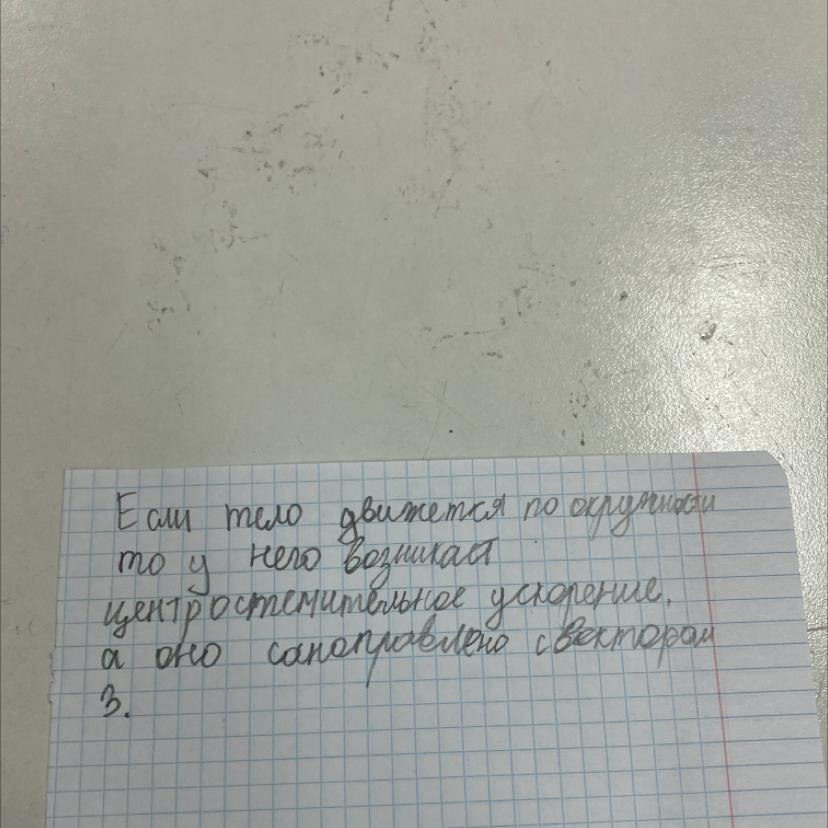 Если тело движется по окружности
то у него возникает
центростемительное ускорение,
а оно сонаправлено с вектором
3.